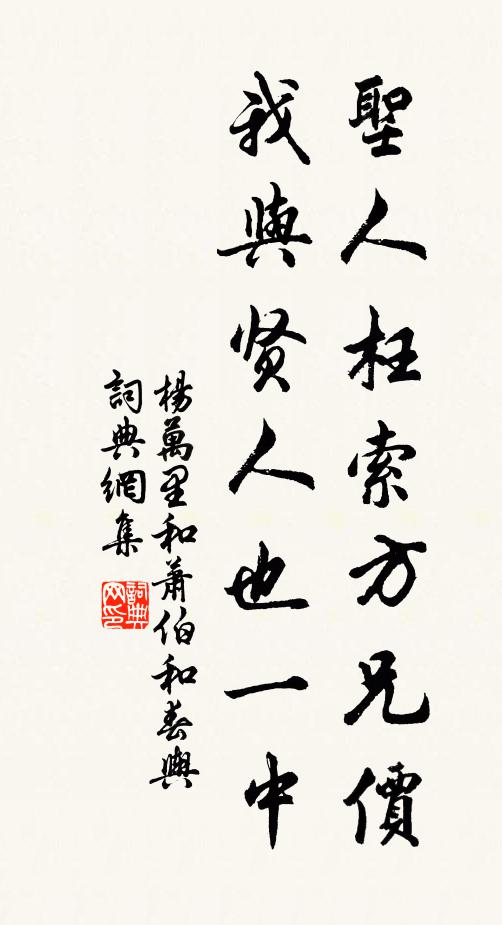 聖人枉索方兄價
我與贤人也一中
楊萬里和蕭伯和春興
詞典網集
詞典网印